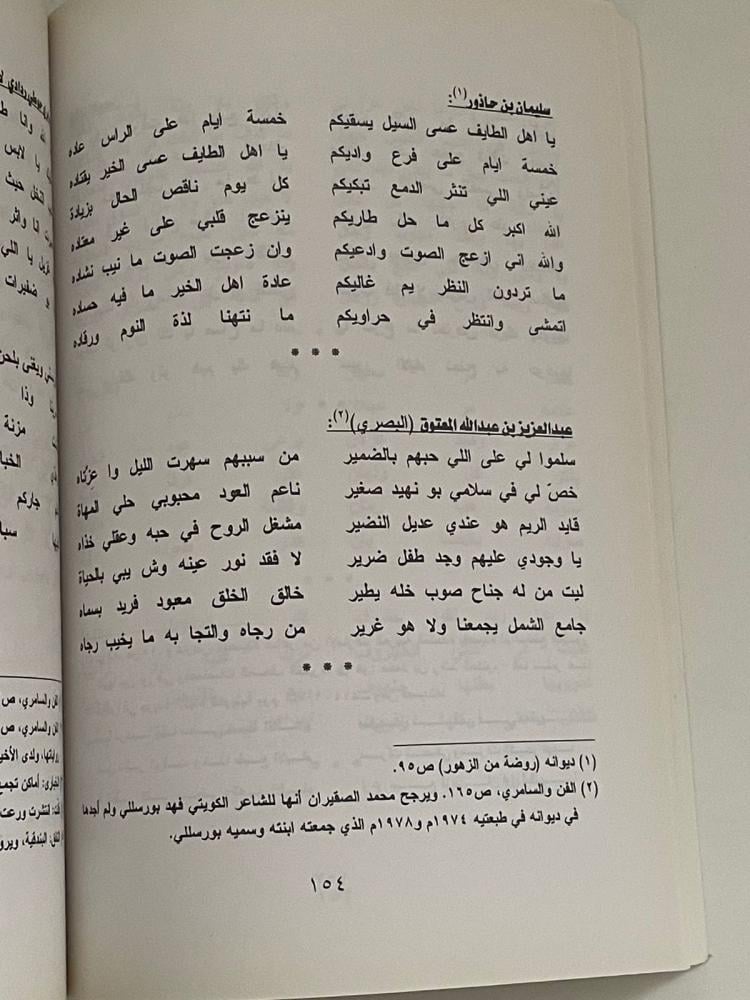 سليمان بن حاذور(١):
يا اهل الطايف عسى السيل يسقيكم خمسة ايام على الراس عاده
خمسة ايام على فرع واديكم يا اهل الطايف عسى الخير يقتاده
عيني اللي تنثر الدمع تبكيكم كل يوم ناقص الحال بزيادة
الله اكبر كل ما حل طاريكم ينزعج قلبي على غير معتاده
والله اني ازعج الصوت وادعيكم وان زعجت الصوت ما نيب نشاده
ما تردون النظر يم غاليكم عادة اهل الخير ما فيه حساده
اتمشى وانتظر في حراويكم ما نتهنا لذة النوم ورقاده
* * *
عبدالعزيز بن عبدالله المعتوق (البصري)(٢):
سلموا لي على اللي حبهم بالضمير من سببهم سهرت الليل وا عزتاه
خصّ لي في سلامي بو نهيد صغير ناعم العود محبوبي حلي المهاة
قايد الريم هو عندي عديل النضير مشغل الروح في حبه وعقلي خذاه
يا وجودي عليهم وجد طفل ضرير لا فقد نور عينه وش يبي بالحياة
ليت من له جناح صوب خله يطير خالق الخلق معبود فريد بسماه
جامع الشمل يجمعنا ولا هو غرير من رجاه والتجا به ما يخيب رجاه
* * *
(١) ديوانه (روضة من الزهور) ص٩٥.
(٢) الفن والسامري، ص١٦٥. ويرجح محمد الصقيران أنها للشاعر الكويتي فهد بورسللي ولم أجدها
في ديوانه في طبعتيه ١٩٧٤م و١٩٧٨م الذي جمعته ابنته وسميه بورسللي.
١٥٤